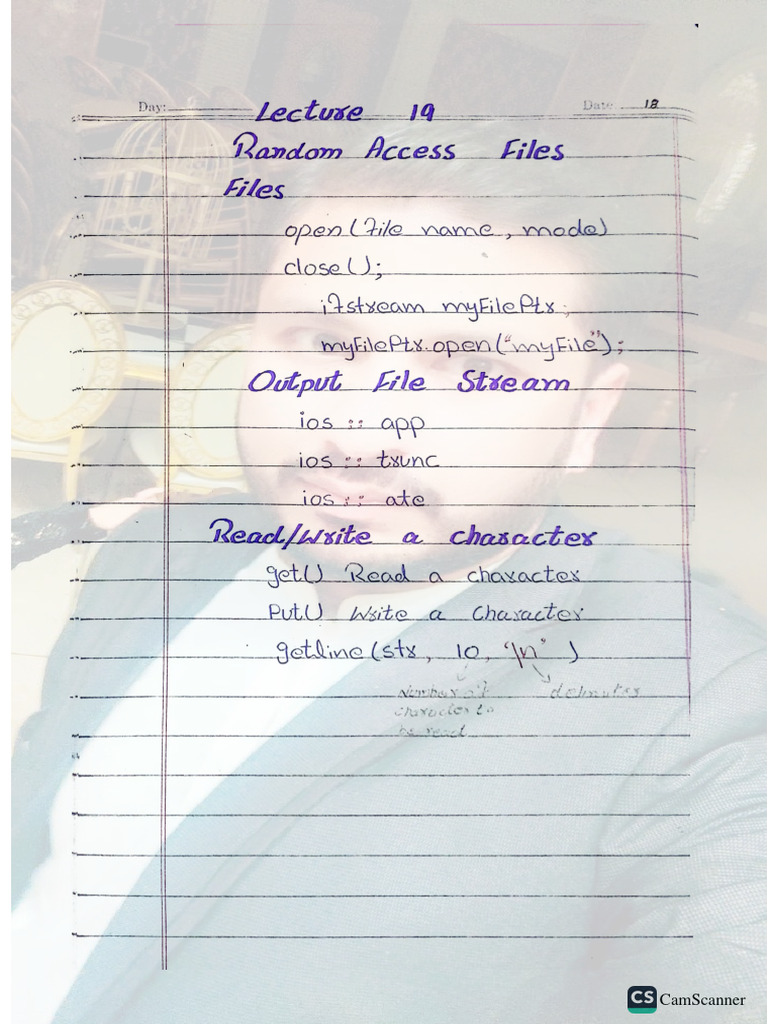 Day: Lecture 19 Date 18
Random Access Files
Files
open(file name, mode)
close();
ifstream myFilePtr;
myFilePtr.open("myFile");
Output File Stream
ios :: app
ios :: trunc
ios :: ate
Read/Write a character
get() Read a character
Put() Write a Character
getline(str, 10, '\n' )
Number of delimiter
character to
be read
CS CamScanner